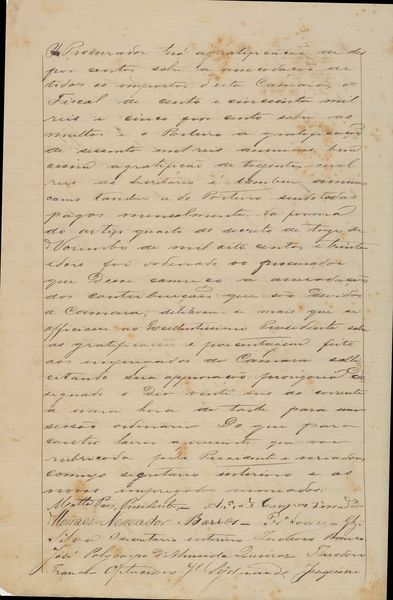 O Procurador terá a gratificação de dez
por cento sobre a arrecadação de
todos os impostos d'esta Camara, o
Fiscal de cento e cincoenta mil
reis e cinco por cento sobre as
multas e o Porteiro a gratificação
de secenta mil reis annuaes bem
assim a gratificação de tresentos mil
reis do Secretario é tambem annual
como tambem a do Porteiro sendo todas
pagas mensalmente. Na forma
do artigo quarto do decreto de treze de
Novembro de mil oito centos e trinta
e dois foi ordenado ao procurador
que desse começo a arrecadação
dos contribuições que são devidas
a Camara; deliberou-se mais que se
officiasse ao Excellentissimo Presidente sobre
as gratificação e porcentagem feita
aos empregados da Camara solli
citando sua approvação provisoria De
signado o dia vinte seis do corrente
a uma hora da tarde para uma
secção ordinaria. Do que para
constar lavrei a presente que vai
rubricada pelo Presidente e vereadores,
comigo secretario interino e os
novos empregados nomeados.
Presidente
Moraes Barros
Silva Secretario interino Theodoro
José Polycarpo d'Almeida Queiroz Theodoro
Franco Joaquim